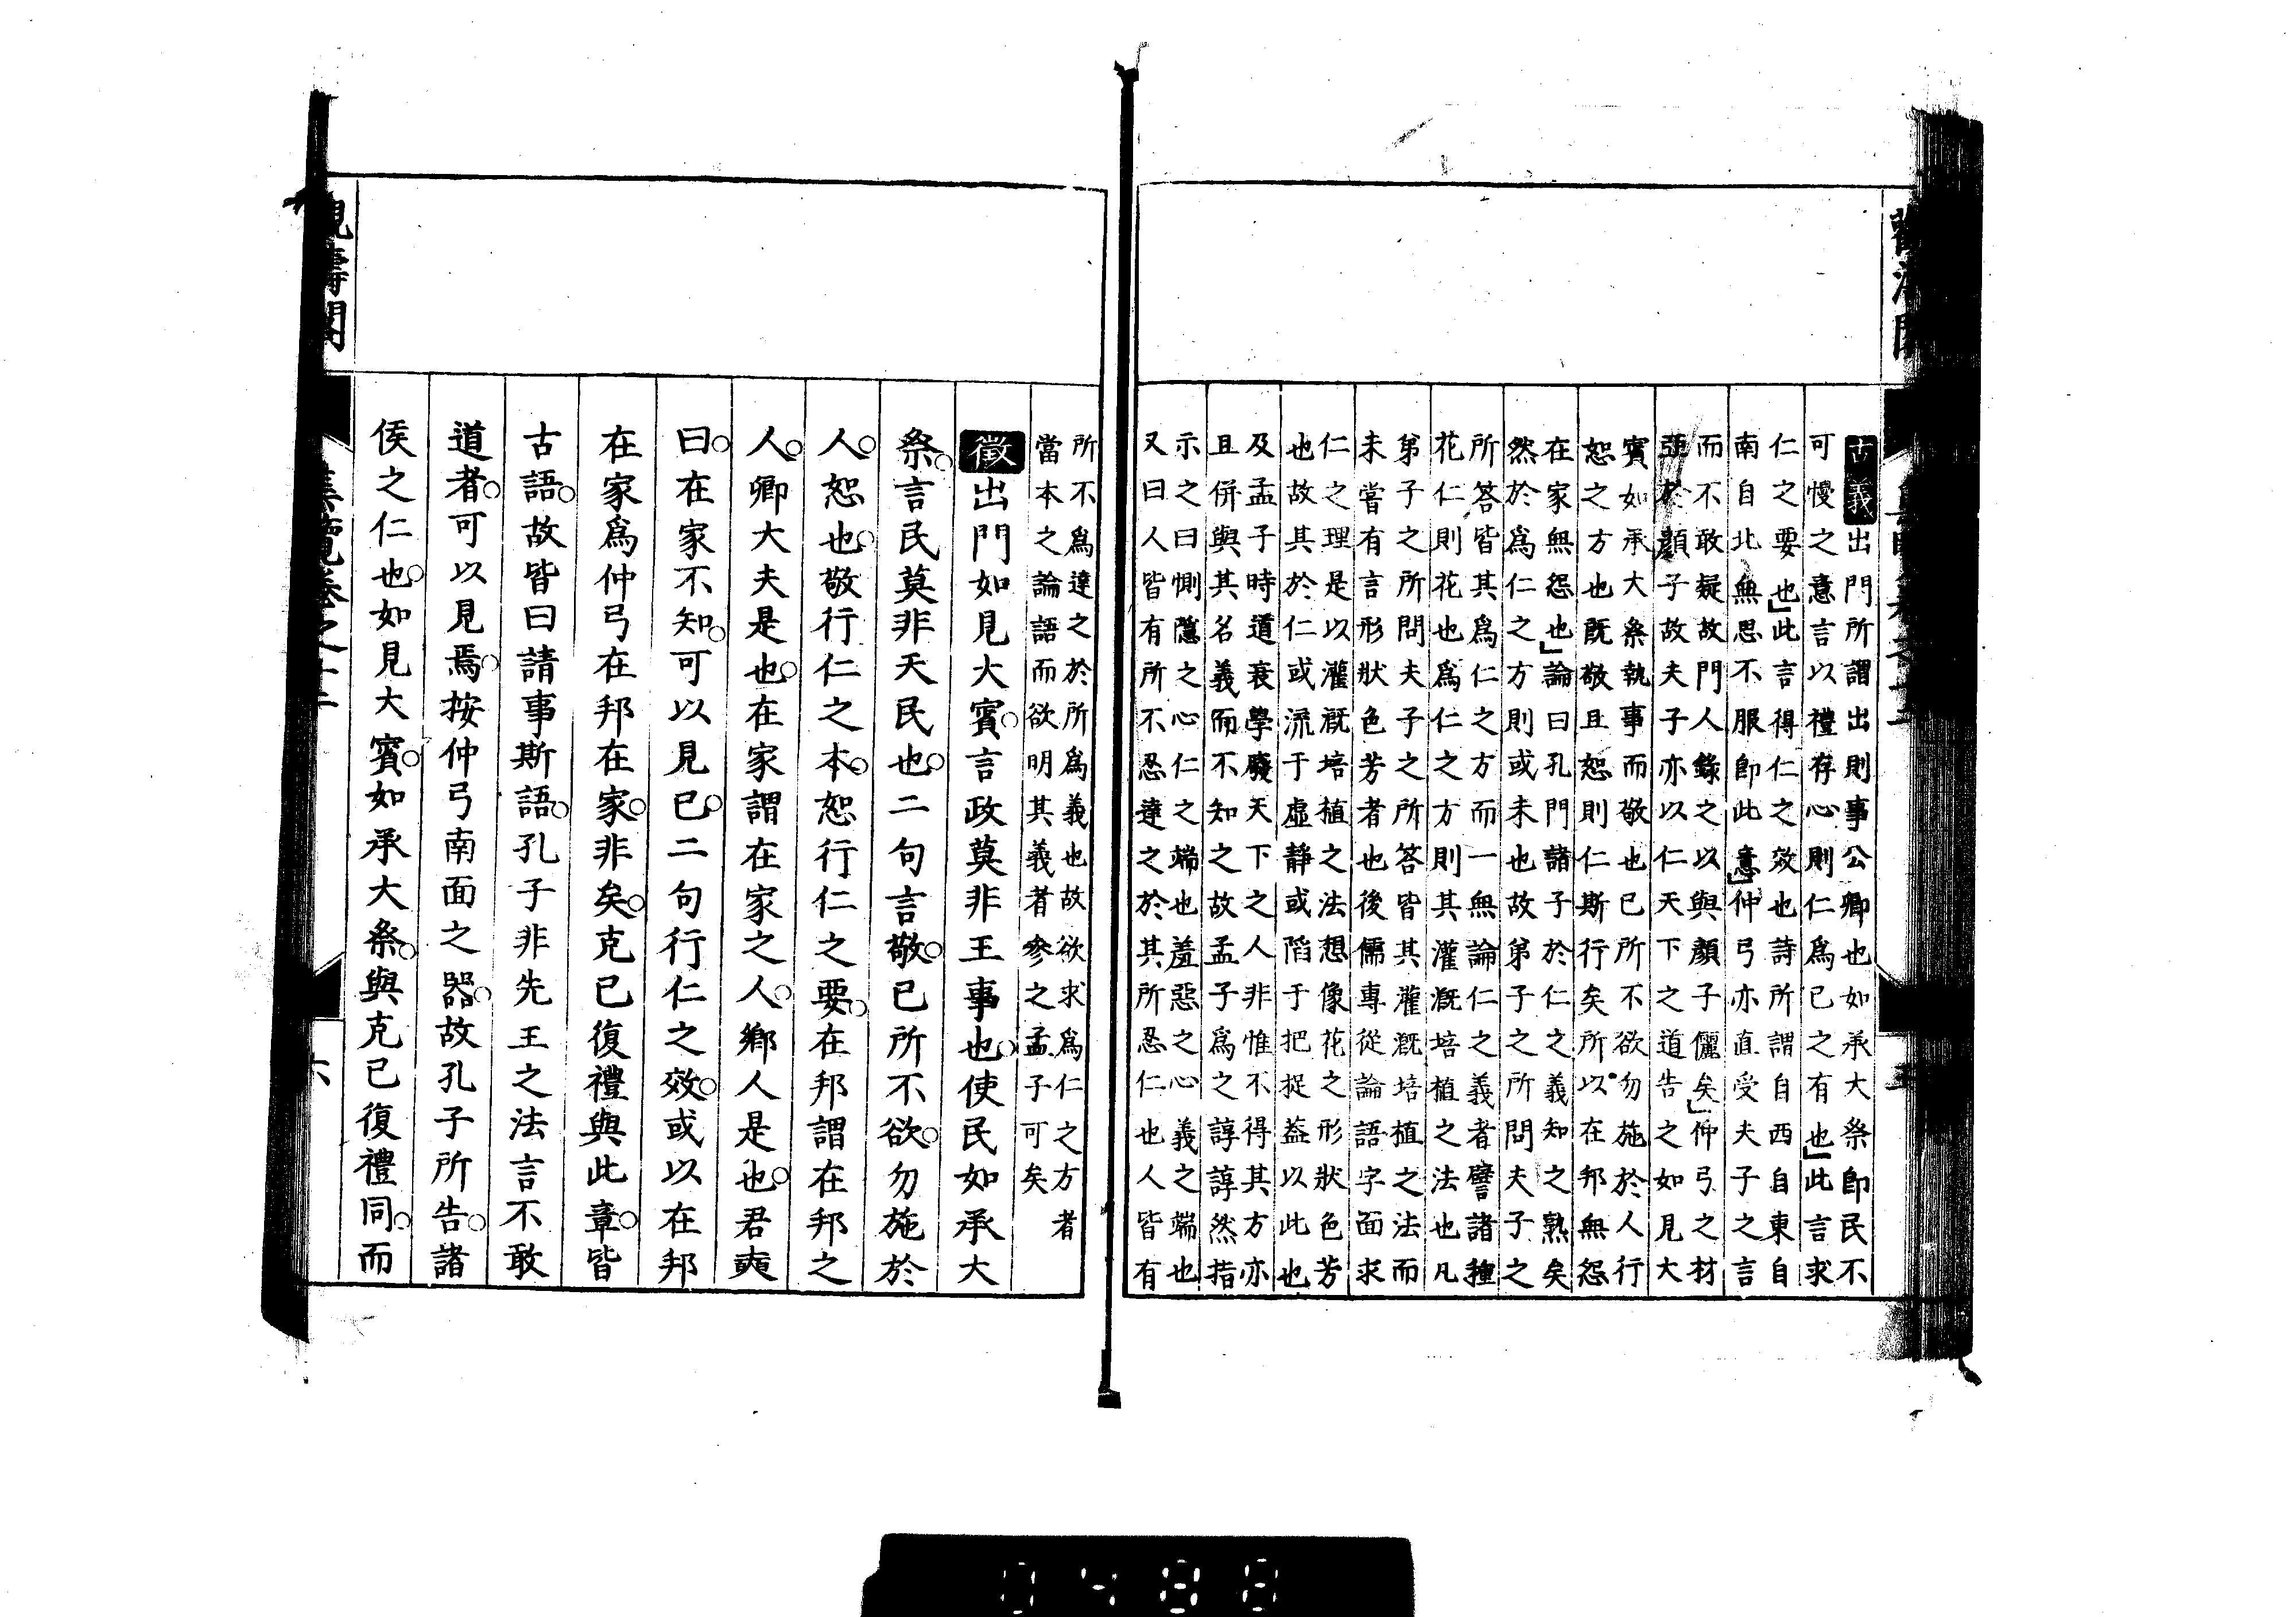 古義出門所謂出則事公卿也如承大祭即民不
可慢之意言以禮存心則仁爲己之有也」此言求
仁之要也」此言得仁之效也詩所謂自西自東自
南自北無思不服即此意」仲弓亦直受夫子之言
而不敢疑故門人錄之以與顏子儷矣」仲弓之材
亞於顏子故夫子亦以仁天下之道告之如見大
賓如承大祭執事而敬也己所不欲勿施於人行
恕之方也既敬且恕則仁斯行矣所以在邦無怨
在家無怨也」論曰孔門諸子於仁之義知之熟矣
然於爲仁之方則或未也故弟子之所問夫子之
所答皆其爲仁之方而一無論仁之義者譬諸種
花仁則花也爲仁之方則其灌漑培植之法也凡
第子之所問夫子之所答皆其灌漑培植之法而
未嘗有言形狀色芳者也後儒專從論語字面求
仁之理是以灌漑培植之法想像花之形狀色芳
也故其於仁或流于虛靜或陷于把捉盖以此也
及孟子時道衰學廢天下之人非惟不得其方亦
且併與其名義而不知之故孟子爲之諄諄然指
示之曰惻隱之心仁之端也羞惡之心義之端也
又曰人皆有所不忍達之於其所忍仁也人皆有
所不爲達之於所爲義也故欲求爲仁之方者
當本之論語而欲明其義者參之孟子可矣
徵出門如見大賓。言政莫非王事也。使民如承大
祭。言民莫非天民也。二句言敬。己所不欲。勿施於
人。恕也。敬行仁之本。恕行仁之要。在邦謂在邦之
人。卿大夫是也。在家謂在家之人。鄉人是也。君奭
曰。在家不知。可以見已。二句行仁之效。或以在邦
在家爲仲弓在邦在家。非矣。克己復禮與此章。皆
古語。故皆曰請事斯語。孔子非先王之法言不敢
道者。可以見焉。按仲弓南面之器。故孔子所告。諸
侯之仁也。如見大賓。如承大祭。與克己復禮同。而
觀濤閣
集覽卷之十二
六